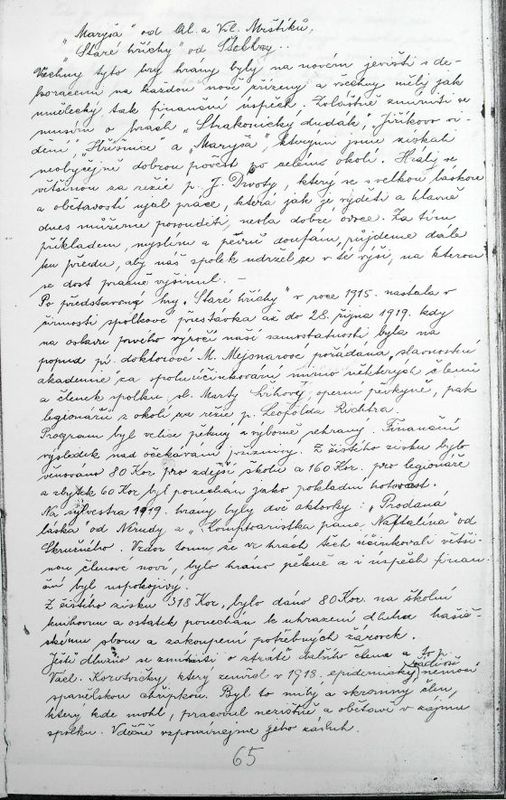 „Maryša" od Al. a Vil. Mrštíků,
„Staré hříchy" od Štěbky..
Všechny tyto hry hrány byly na novém jevišti i de-
koracemi na každou nově přízený a všechny měly jak
umělecký tak finanční úspěch. Zvláštně zmíniti se
musím o hrách „Strakonický dudák", Jiříkovo vi-
dění, „Hříšnice" a „Maryša", kterým jsme získali
neobyčejně dobrou pověst po celém okolí. Hrály se
většinou za režie p. J. Dvoty, který se s velkou láskou
a obětavostí ujal práce, která jak je viděti a hlavně
dnes můžeme posouditi nesla dobré ovoce. Za tím
příkladem, myslím a pevně doufám, půjdeme dále
ku předu, aby náš spolek udržel se v té výši, na kterou
se dost pracně vyšinul. –
Po představené hry „Staré hříchy" v roce 1915. nastala v
činnosti spolkové přestávka až do 28. října 1919. kdy
na oslavu prvého výročí naší samostatnosti byla na
popud pí. doktorové M. Mejsnarové pořádána, slavnostní
akademie za spoluúčinkování mimo některých členů
a členek spolku sl. Marty operní pěvkyně, pak
legionářů z okolí za režie p. Leopolda Richtra.
Program byl velice pěkný a výborně sehraný. Finanční
výsledek nad očekávání příznivý. Z čistého zisku bylo
věnováno 80 Kor pro zdejší školu a 160 Kor. pro legionáře
a zbytek 60 Kor byl ponechán jako pokladní hotovost.
Na sylvestra 1919. hrány byly dvě aktovky: „Prodaná
láska" od Nerudy a „Komptoaristka pana Naftalína" od
Skružného. Vzdor tomu že ve hrách těch účinkovali větši-
nou členové noví, bylo hráno pěkně a i úspěch finan-
ční byl uspokojivý.
Z čistého zisku 318 Kor, bylo dáno 80 Kor. na školní
knihovnu a ostatek ponechán k uhrazení dluhu hasič-
skému sboru a zakoupení potřebných zárovek.
Ještě dlužno se zmíniti o ztrátě dalšího člena a to p.
Václ. který zemřel v 1918. epidemickou řádivší nemocí
španělskou chřipkou. Byl to milý a skromný člen,
který kde mohl, pracoval nezištně a obětavě v zájmu
spolku. Vděčně vzpomínejme jeho zásluh.
65